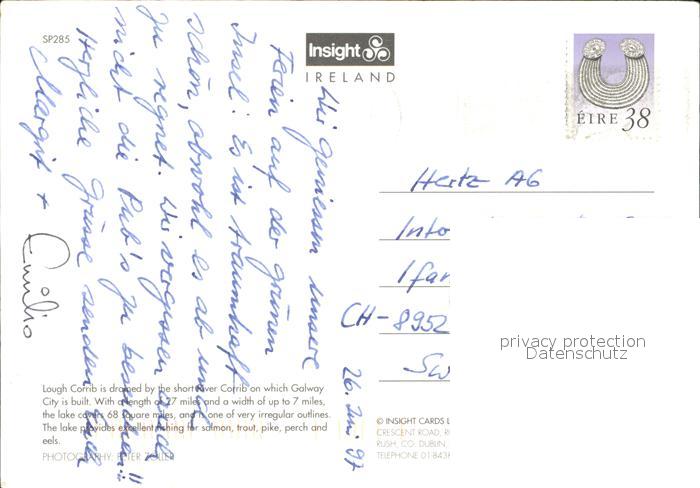 SP285
Insight
IRELAND
ÉIRE 38
Wir geniessen unsere
Ferien auf der grünen
Insel. Es ist traumhaft
schön, obwohl es ab und
zu regnet. Wir vergessen auch
nicht die Pub's zu besuchen!!
Herzliche Grüsse senden Euch
Margrit +
Emilio
26. Juni 97
Hertz AG
Into
Ifan
CH-8952
Sw
privacy protection
Datenschutz
Lough Corrib is drained by the short River Corrib on which Galway
City is built. With a length of 27 miles and a width of up to 7 miles,
the lake covers 68 square miles, and is one of very irregular outlines.
The lake provides excellent fishing for salmon, trout, pike, perch and
eels.
PHOTOGRAPHY: PETER ZOLLER
© INSIGHT CARDS L
CRESCENT ROAD, R
RUSH, CO. DUBLIN,
TELEPHONE 01-843